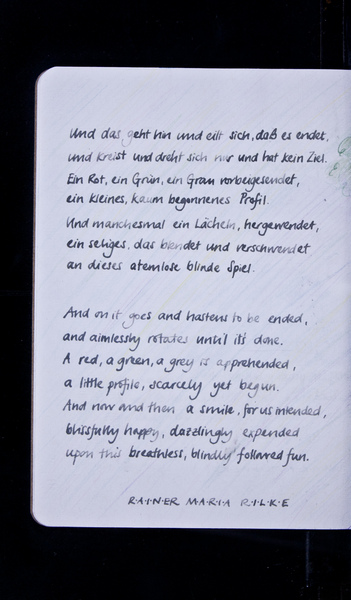 Und das geht hin und eilt sich, daß es endet,
und kreist und dreht sich nur und hat kein Ziel.
Ein Rot, ein Grün, ein Grau vorbeigesendet,
ein kleines, kaum begonnenes Profil.
Und manchesmal ein Lächeln, hergewendet,
ein seliges, das blendet und verschwendet
an dieses atemlose blinde Spiel.
And on it goes and hastens to be ended,
and aimlessly rotates until it's done.
A red, a green, a grey is apprehended,
a little profile, scarcely yet begun.
And now and then a smile, for us intended,
blissfully happy, dazzlingly expended
upon this breathless, blindly followed fun.
R·A·I·N·E·R M·A·R·I·A R·I·L·K·E